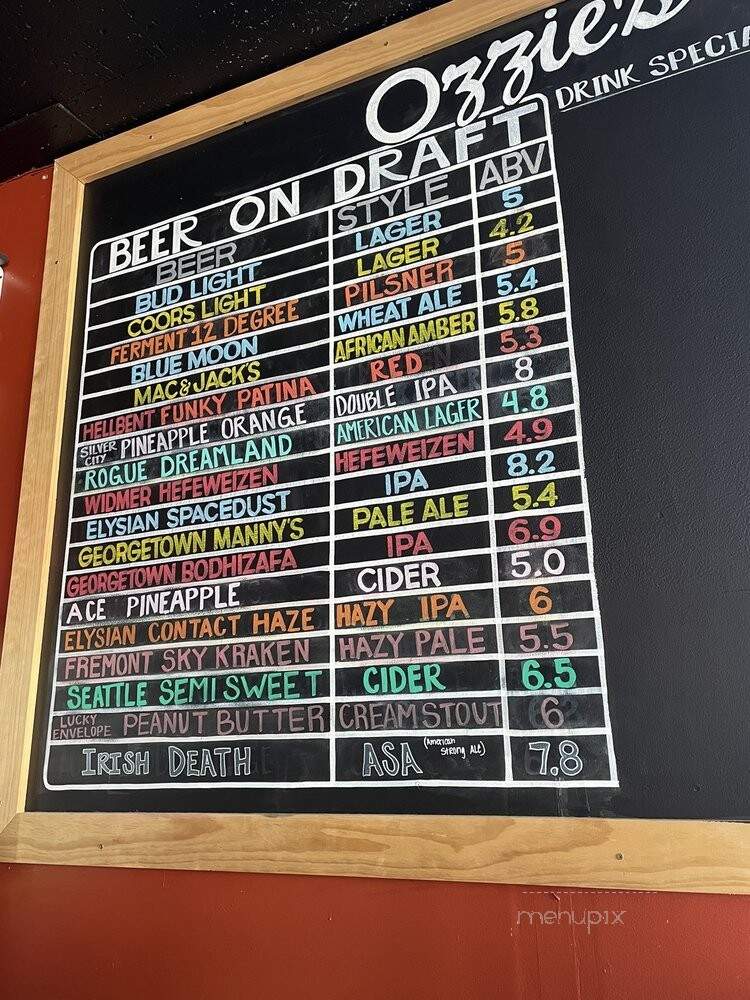 Ozzie's
DRINK SPECIA
BEER ON DRAFT
BEER STYLE ABV
BUD LIGHT LAGER 5
COORS LIGHT LAGER 4.2
FERMENT 12 DEGREE PILSNER 5
BLUE MOON WHEAT ALE 5.4
MAC & JACK'S AFRICAN AMBER 5.8
HELLBENT FUNKY PATINA RED 5.3
SILVER CITY PINEAPPLE ORANGE DOUBLE IPA 8
ROGUE DREAMLAND AMERICAN LAGER 4.8
WIDMER HEFEWEIZEN HEFEWEIZEN 4.9
ELYSIAN SPACEDUST IPA 8.2
GEORGETOWN MANNY'S PALE ALE 5.4
GEORGETOWN BODHIZAFA IPA 6.9
ACE PINEAPPLE CIDER 5.0
ELYSIAN CONTACT HAZE HAZY IPA 6
FREMONT SKY KRAKEN HAZY PALE 5.5
SEATTLE SEMI SWEET CIDER 6.5
LUCKY ENVELOPE PEANUT BUTTER CREAM STOUT 6
IRISH DEATH ASA (American Strong Ale) 7.8
menupix